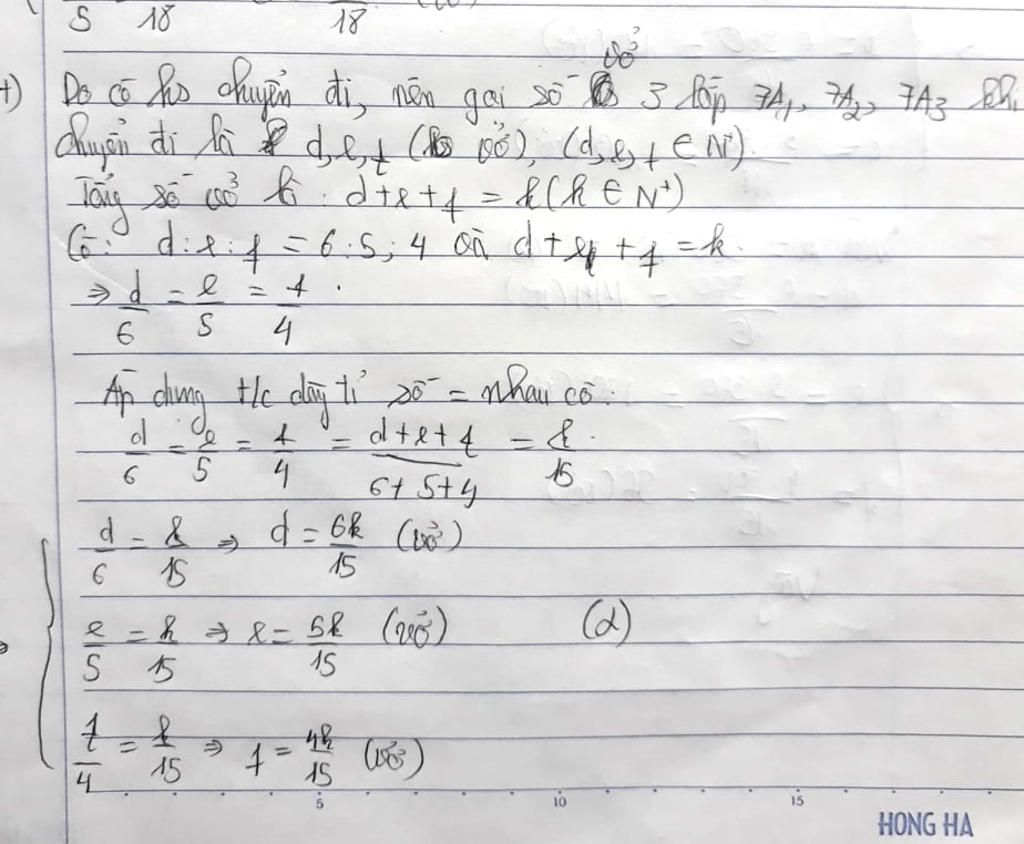 5 18 18
+) Do có hs chuyển đi, nên gọi số vở 3 lớp 7A1, 7A2, 7A3 khi
chuyển đi là d, e, f (vở), (d, e, f ∈ N+).
Tổng số vở là : d + e + f = k (k ∈ N+)
Có: d : e : f = 6 : 5 ; 4 và d + e + f = k.
⇒ d/6 = e/5 = f/4.
Áp dụng t/c dãy tỉ số = nhau có:
d/6 = e/5 = f/4 = (d + e + f)/(6 + 5 + 4) = k/15.
d/6 = k/15 ⇒ d = 6k/15 (vở)
e/5 = k/15 ⇒ e = 5k/15 (vở) (2)
f/4 = k/15 ⇒ f = 4k/15 (vở)
5 10 15
HONG HA